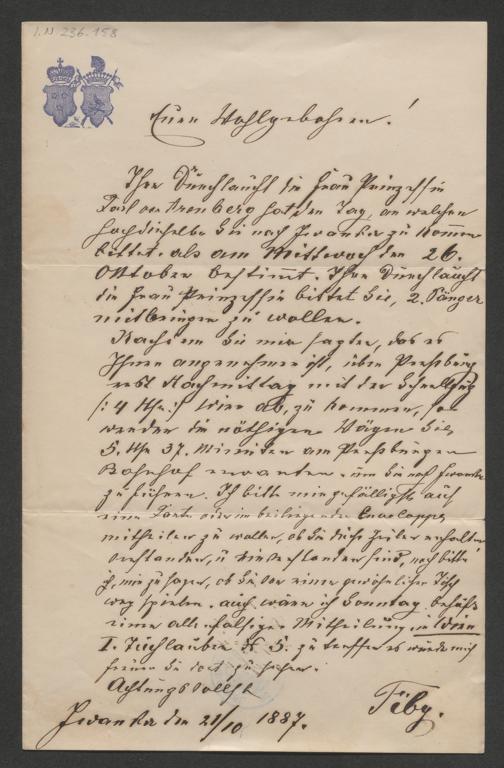 I.N 236.158
Euer Wohlgebohren!
Ihre Durchlaucht die Frau Prinzessin
Karl von Arenberg hat den Tag, an welchem
hochdieselbe Sie nach Ivanka zu kommen
bittet, als am Mittwoch den 26.
Oktober bestimmt. Ihre Durchlaucht
die Frau Prinzessin bittet Sie, 2. Sänger
mitbringen zu wollen.
Nachdem Sie mir sagten, das es
Ihnen angenehmer ist, über Preßburg
erst Nachmittag mit der Schnellzug
/: 4 Uhr :/ Wien ab, zu kommen, so
werden die nöthigen Wägen Sie,
5. Uhr 37. Minuten am Preßburger
Bahnhof erwarten, um Sie nach Ivanka
zu führen. Ich bitte mir gefälligst auf
einer Karte oder im beiliegenden Couvert
mittheilen zu wollen, ob Sie diese Zeilen erhalten
verstanden, u einverstanden sind, noch bitte
ich, mir zu sagen, ob Sie vor einen gewöhnlichen
weg spielen. auch wäre ich Sonntag behufs
einer allenfalsigen Mittheilung in Wien
I. Tuchlauben № 5. zu treffen es würde mich
freuen Sie dort zu sehen.
Achtungsvollst
Tiby.
Ivanka den 21/10 1887.